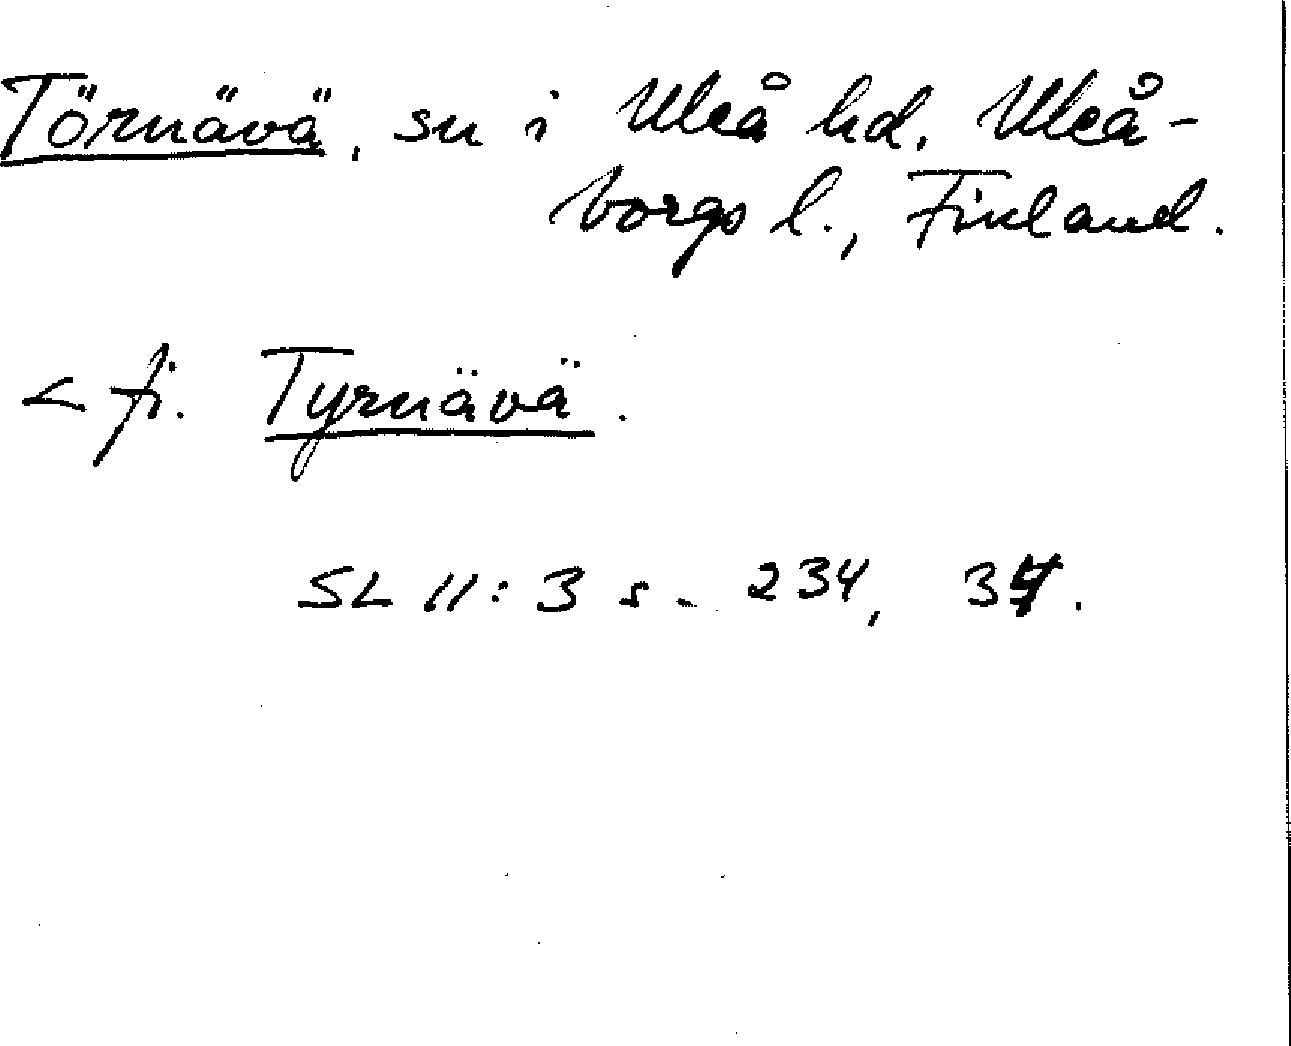 Törnävä, sn i Uleå hd, Uleå-
borgs l., Finland.
< fi. Tyrnävä.
SL 11:3 s. 234,